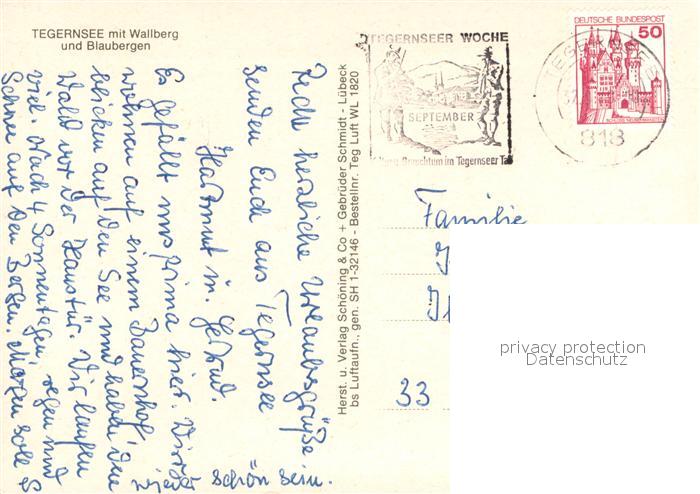 TEGERNSEE mit Wallberg
und Blaubergen
Recht herzliche Urlaubsgrüße
senden Euch aus Tegernsee
Hartmut u. Gertrud.
Es gefällt uns prima hier. Wir
wohnen auf einem Bauernhof,
blicken auf den See und haben den
Wald vor der Haustür. Wir laufen
viel. Nach 4 Sonnentagen, regen und
Schnee auf den Bergen. Morgen soll es
wieder schön sein.
Herst. u. Verlag Schöning & Co + Gebrüder Schmidt - Lübeck
bs Luftaufn., gen. SH 1-32146 - Bestellnr. Teg Luft WL 1820
TEGERNSEER WOCHE
SEPTEMBER
Brauchtum im Tegernseer Tal
DEUTSCHE BUNDESPOST
50
818
Familie
33
privacy protection
Datenschutz